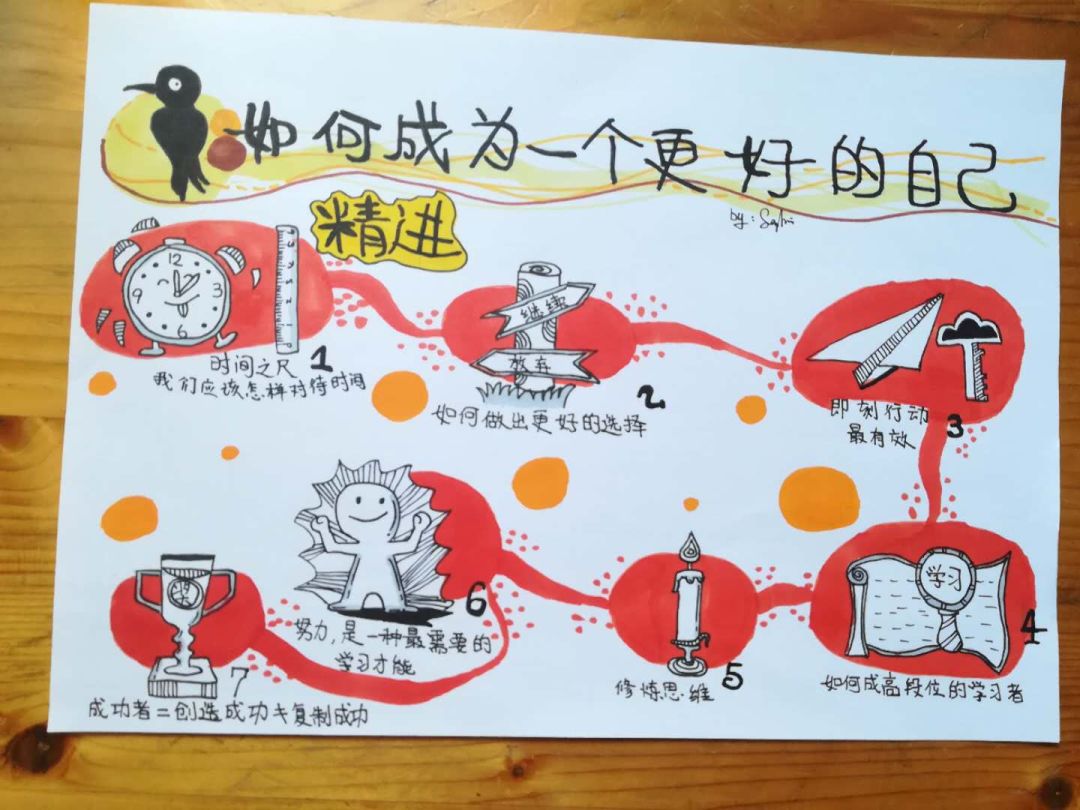 如何成为一个更好的自己
by:
精进
12
9
3
6
时间之尺
1
我们应该怎样对待时间
继续
放弃
2
如何做出更好的选择
即刻行动
最有效
3
学习
4
如何成高段位的学习者
5
修炼思维
6
努力,是一种最需要的
学习才能
7
成功者=创造成功+复制成功